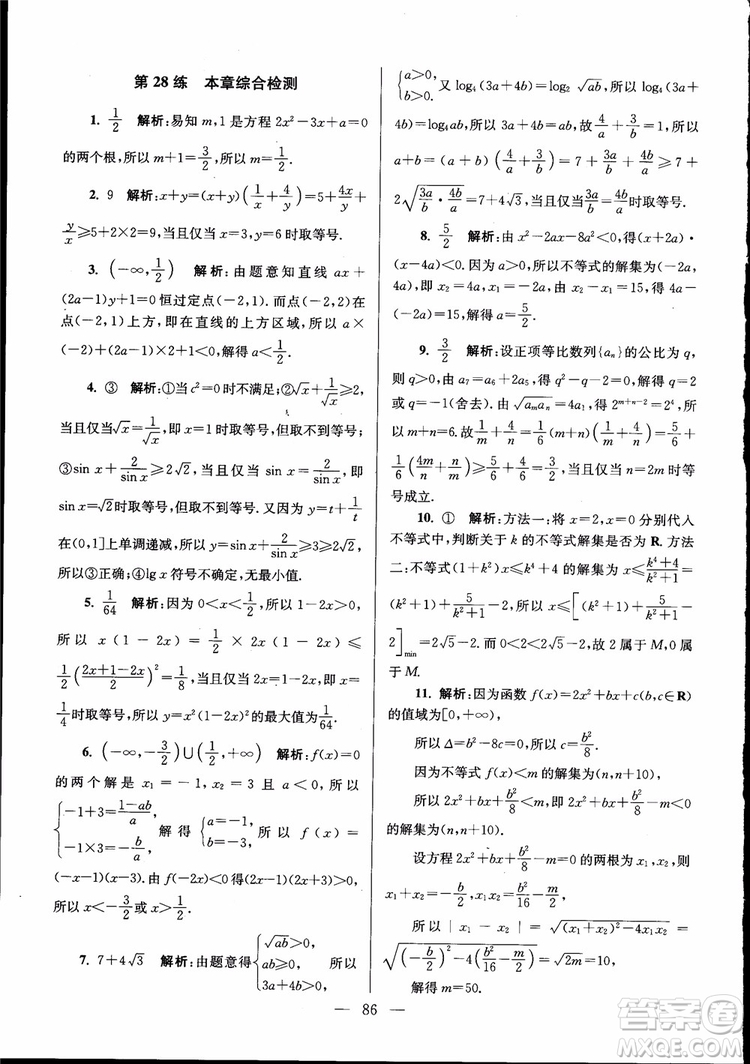 第 28 练　本章综合检测
1. 1/2　解析:易知 m,1 是方程 2x²-3x+a=0
的两个根,所以 m+1=3/2,所以 m=1/2.
2. 9　解析:x+y=(x+y)(1/x+4/y)=5+4x/y+
y/x≥5+2×2=9,当且仅当 x=3,y=6 时取等号.
3. (-∞,1/2)　解析:由题意知直线 ax+
(2a-1)y+1=0 恒过定点(-2,1).而点(-2,2)在
点(-2,1)上方,即在直线的上方区域,所以 a×
(-2)+(2a-1)×2+1<0,解得 a<1/2.
4. ③　解析:①当 c²=0 时不满足;②√x+1/√x≥2,
当且仅当√x=1/√x,即 x=1 时取等号,但取不到等号;
③sin x+2/sin x≥2√2,当且仅当 sin x=2/sin x,即
sin x=√2时取等号,但取不到等号.又因为 y=t+1/t
在(0,1]上单调递减,所以 sin x+2/sin x≥3>2√2,
所以③正确;④lg x 符号不确定,无最小值.
5. 1/64　解析:因为 0<x<1/2,所以 1-2x>0,
所以 x(1-2x)=1/2×2x(1-2x)≤
1/2((2x+1-2x)/2)²=1/8,当且仅当 2x=1-2x,即 x=
1/4时取等号,所以 x²(1-2x)²的最大值为1/64.
6. (-∞,-3/2)∪(1/2,+∞)　解析:f(x)=0
的两个解是 x₁=-1,x₂=3 且 a<0,所以
{-1+3=(1-ab)/a, -1×3=-b/a, 解得{a=-1, b=-3, 所以 f(x)=
(-x-1)(x-3).由 f(-2x)<0,得(2x-1)(-2x-3)<0.
所以x<-3/2或 x>1/2.
7. 7+4√3　解析:由题意得{√ab>0, ab≥0, 3a+4b>0, 所以
{a>0, b>0. 又 log₄(3a+4b)=log₂ √ab,所以 log₄(3a+
4b)=log₄ab,所以 3a+4b=ab,故4/a+3/b=1,所以
a+b=(a+b)(4/a+3/b)=7+3a/b+4b/a≥7+
2√(3a/b·4b/a)=7+4√3,当且仅当3a/b=4b/a时取等号.
8. 5/2　解析:由 x²-2ax-8a²<0,得(x+2a)·
(x-4a)<0.因为 a>0,所以不等式的解集为(-2a,
4a),即 x₂=4a,x₁=-2a.由 x₂-x₁=15,得 4a-
(-2a)=15,解得 a=5/2.
9. 3/2　解析:设正项等比数列{aₙ}的公比为 q,
则 q>0.由 a₇=a₆+2a₅,得 q²-q-2=0,解得 q=2
或 q=-1(舍去).由√(aₘaₙ)=4a₁,得 2^(m+n-2)=2⁴,所
以 m+n=6.故1/m+4/n=1/6(1/m+4/n)(m+n)=5/6+
1/6(4m/n+n/m)≥5/6+4/6=3/2,当且仅当 n=2m 时等
号成立.
10. ①　解析:方法一:将 x=2,x=0 分别代入
不等式中,判断关于 k 的不等式解集是否为 R.方法
二:不等式(1+k²)x≤k⁴+4 的解集为 x≤(k⁴+4)/(k²+1)=
(k²+1)+5/(k²+1)-2,所以 x≤[(k²+1)+5/(k²+1)-
2]min=2√5-2.而 0<2<2√5-2,故 2 属于 M,0 属
于 M.
11. 解析:因为函数 f(x)=2x²+bx+c(b,c∈R)
的值域为[0,+∞),
所以 Δ=b²-8c=0,所以 c=b²/8.
因为不等式 f(x)<m 的解集为(n,n+10),
所以 2x²+bx+b²/8<m,即 2x²+bx+b²/8-m<0
的解集为(n,n+10).
设方程 2x²+bx+b²/8-m=0 的两根为x₁,x₂,则
x₁+x₂=-b/2,x₁x₂=b²/16-m/2,
所以 |x₁-x₂|=√((x₁+x₂)²-4x₁x₂)=
√((-b/2)²-4(b²/16-m/2))=√2m=10,
解得 m=50.
— 86 —
答案圈
MXQE.COM